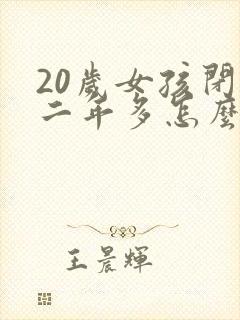 20歲女孩閉
二年多怎麼
王晨輝